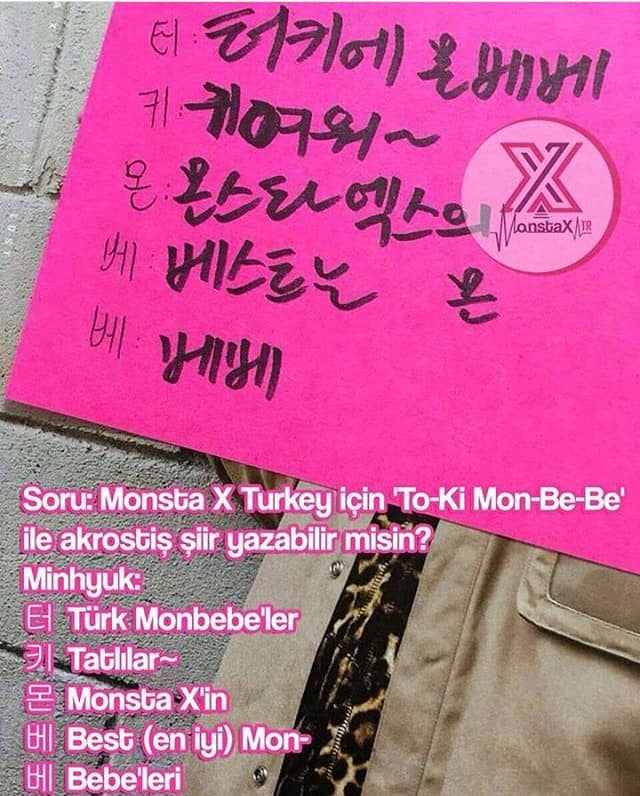 터: 터키에 몬베베
키: 퀴여워~
몬: 몬스타엑스의
베: 베스트는 몬
베: 베베
MonstaX TR
Soru: Monsta X Turkey için 'To-Ki Mon-Be-Be'
ile akrostiş şiir yazabilir misin?
Minhyuk:
터 Türk Monbebe'ler
키 Tatlılar~
몬 Monsta X'in
베 Best (en iyi) Mon-
베 Bebe'leri